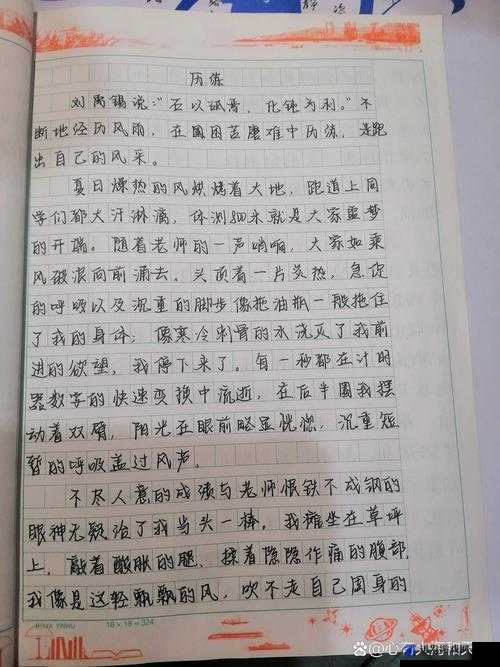 历练
刘禹锡说："石以砥焉，化钝为利。"不
断地经历风雨，在困苦磨难中历练，是跑
出自己的风采。
夏日燥热的风烘烤着大地，跑道上同
学们都大汗淋漓，体测周末就是大家噩梦
的开端。随着老师的一声哨响，大家如乘
风破浪向前涌去。头顶着一片炎热，急促
的呼吸以及沉重的脚步像拖油瓶一般拖住
了我的身体；像寒冷刺骨的水浇灭了我前
进的欲望，我停下来了。每一秒都在计时
器数字的快速变换中流逝，在后半圈我摆
动着双臂，阳光在眼前略显恍惚，沉重短
暂的呼吸盖过风声。
不尽人意的成绩与老师恨铁不成钢的
眼神无疑给了我当头一棒，我瘫坐在草坪
上，敲着酸胀的腿，揉着隐隐作痛的腹部，
我像是这轻飘飘的风，吹不走自己周身的
18×18=324